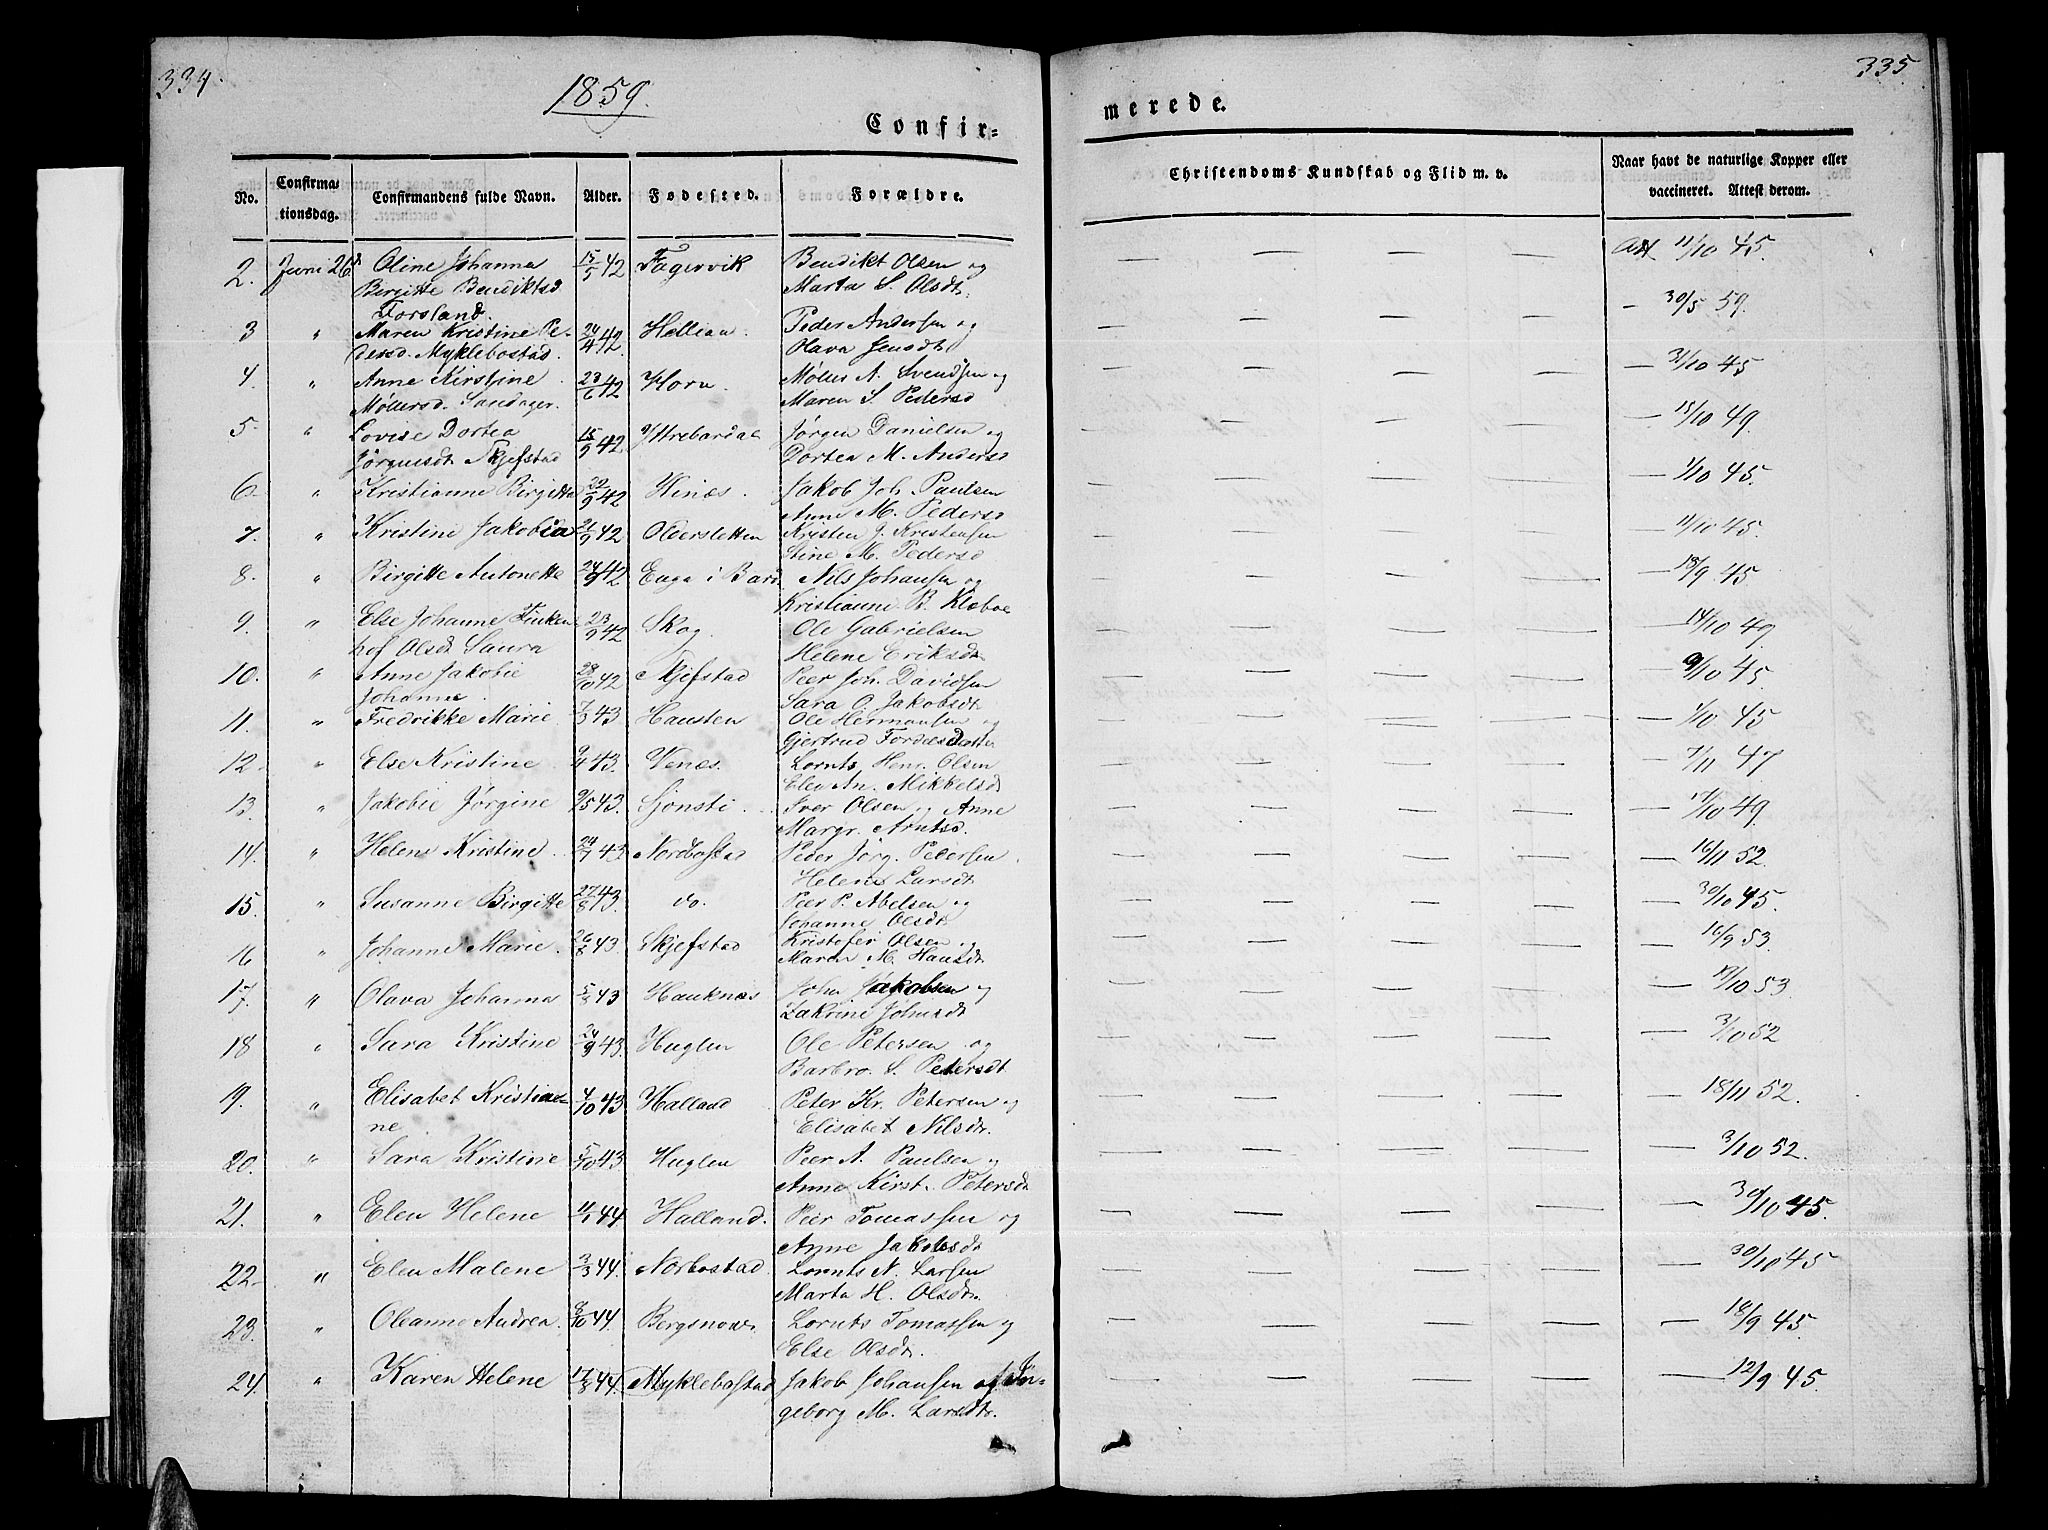 334.
335
1859.
Confir-
merede.
No. Confirmationsdag. Confirmandens fulde Navn. Alder. Fødested. Forældre. Christendoms Kundskab og Flid m. v. Naar havt de naturlige Kopper eller vaccineret. Attest derom.
2. Juni 26d Oline Johanna 15/5 42 Fagervik Bendikt Olsen og Att 11/10 45.
Birgitte Bendiktsd Marta S. Olsdt.
Forsland.
3 " Maren Kristine Pe- 24/4 42 Helleau Peder Andersen og — 30/5 59.
dersd. Myklebostad. Olava Jensdt
4. " Anne Kirstine 23/6 42 Horn. Møller A. Svendsen og — 31/10 45
Møllersd. Sandager. Maren S. Pedersd
5. " Lovise Dortea 15/9 42 Ytrebardal Jørgen Danielsen og — 15/10 49.
Jørgensdt. Skjefstad Dortea M. Andersd
6. " Kristianne Birgitte 22/9 42 Hinæs. Jakob Joh. Paulsen — 1/10 45.
Anne M. Pedersd
7. " Kristine Jakobia 21/9 42 Oldersletten Kristen J. Kristensen — 11/10 45.
Stine M. Pedersd
8. " Birgitte Antonette 24/9 42 Enga i Bard. Nils Johansen og — 13/9 45.
Kristianne B. Klæboe
9. " Else Johanne Finken- 23/9 42 Skog. Ole Gabrielsen — 14/10 49.
hof Olsdt. Saura Helene Eriksdt.
10. " Anne Jakobie 28/10 42 Skjefstad Peer Joh. Davidsen — 9/10 45.
Johanne Sara O. Jakobsdt
11. " Fredrikke Marie 7/3 43 Hausten Ole Hermansen og — 1/10 45
Gjertrud Fordelsdatter
12. " Else Kristine 9/4 43. Venæs. Lornts Henr. Olsen — 7/11 47
Elen An. Mikkelsdt
13. " Jakobie Jørgine 9/5 43. Sjonsti Iver Olsen og Anne — 11/10 49.
Margr. Arntsd.
14. " Helene Kristine 24/7 43 Nordbostad Peder Jørg. Petersen — 16/11 52.
Helene Larsdt
15. " Susanne Birgitte 27/8 43. do. Peer P. Abelsen og — 30/10 45.
Johanne Olsdt
16 " Johanne Marie 26/8 43 Skjefstad Kristofer Olsen og — 16/9 53.
Maren M. Hansdt
17. " Olava Johanna 5/8 43 Hauknæs John Jakobsen og — 19/10 53.
Zakrine Johnsdt
18 " Sara Kristine 24/9 43. Huglen Ole Petersen og — 3/10 52
Barbro. S. Petersdt
19. " Elisabet Kristian- 4/10 43 Halland Peter Kr. Petersen og — 18/11 52.
ne Elisabet Nilsdt.
20. " Sara Kristine 5/10 43 Huglen Peer A. Paulsen og — 3/10 52.
Anne Kirst. Petersdt
21. " Elen Helene 11/1 44 Halland. Peer Tomassen og — 30/10 45.
Anne Jakobsdt
22. " Elen Malene 3/3 44. Norbostad Lornts N. Larsen — 30/10 45
Marta H. Olsdt.
23. " Oleanne Andrea 8/10 44. Bergsnoves Lornts Tomassen og — 18/9 45.
Else Olsdt.
24. " Karen Helene 17/8 44. Myklebostad Jakob Johansen og In- — 12/9 45.
geborg M. Larsdt.